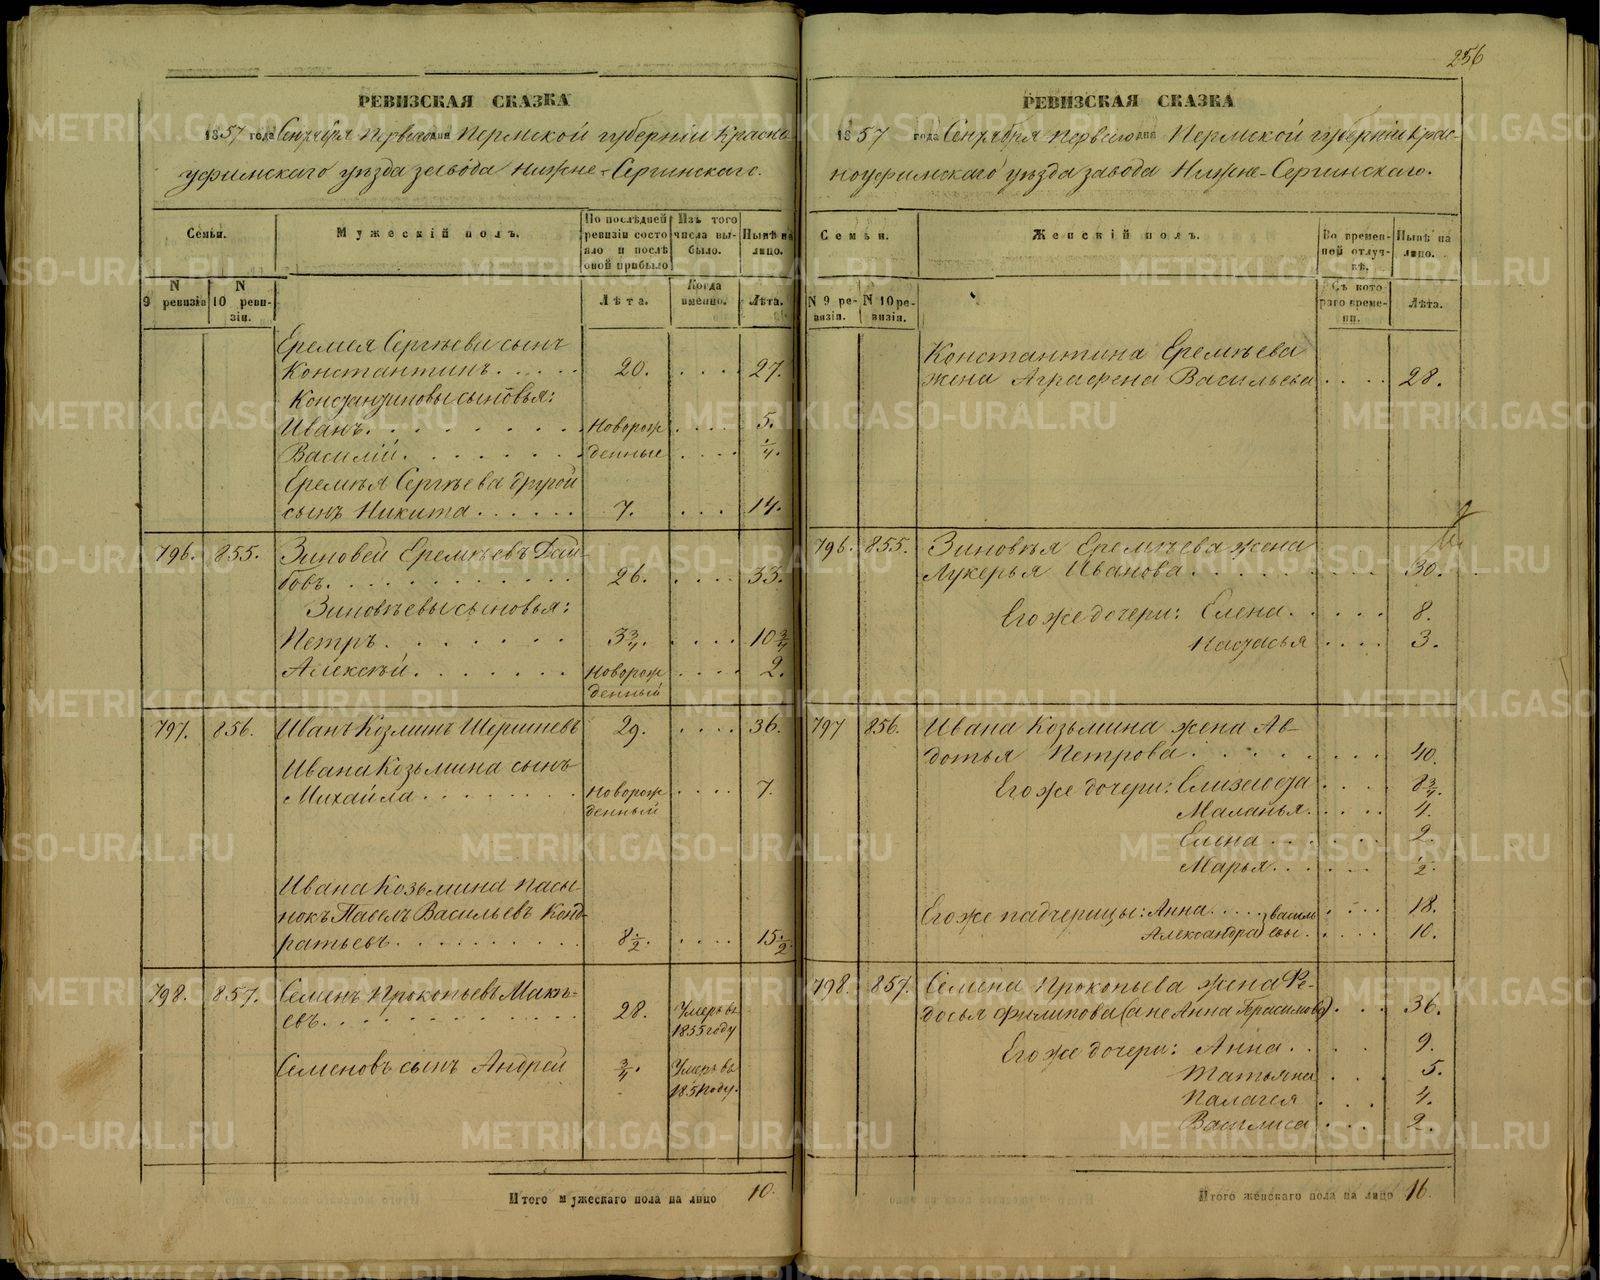 РЕВИЗСКАЯ СКАЗКА
1857 года Сентября Перваго дня Пермской губерніи Красно-
уфимскаго уѣзда завода Нижне-Сергинскаго.
Семьи.
Мужескій полъ.
По послѣдней ревизіи состояло и послѣ оной прибыло
Изъ того числа выбыло.
Нынѣ на лицо.
N 9 ревизіи
N 10 ревизіи.
Лѣта.
Когда именно.
Лѣта.
Еремея Сергѣева сынъ
Константинъ. 20. 27.
Константиновы сыновья:
Иванъ. Новорож 5.
Василій. денные 1/4.
Еремѣя Сергѣева другой
сынъ Никита 7. 14.
796. 855. Зиновей Еремѣевъ
26. 33.
Зиновѣевы сыновья:
Петръ. 3 3/4. 10 3/4
Алексѣй. Новорож 2.
денный
797. 856. Иванъ Козминъ 29. 36.
Ивана Козьмина сынъ
Михайла Новорож 7.
денный
Ивана Козьмина пасы-
нокъ Павелъ Васильевъ Конд-
ратьевъ. 8 1/2. 15 1/2
798. 857. Семенъ Прокопьевъ Макѣ-
евъ. 28. Умеръ въ
1855 году
Семеновъ сынъ Андрей 3/4. Умеръ въ
1851 году.
Итого мужескаго пола на лицо 10.
256
РЕВИЗСКАЯ СКАЗКА
1857 года Сентября Перваго дня Пермской губерніи Крас-
ноуфимскаго уѣзда завода Нижне-Сергинскаго.
Семьи.
Женскій полъ.
Во временной отлучкѣ.
Нынѣ на лицо.
N 9 ревизіи.
N 10 ревизіи.
Съ котораго времени.
Лѣта.
Константина Еремѣева
жена Аграфена Васильева 28.
796. 855. Зиновѣя Еремѣева жена
Лукерья Иванова 30.
Его же дочери: Елена. 8.
Настасья 3.
797 856. Ивана Козьмина жена Ав-
дотья Петрова 40.
Его же дочери: Елизавета 8 3/4.
Маланья. 4.
Елена 2
Марья. 1/2.
Его же падчерицы: Анна. 18.
Александра Василь
евы. 10.
798. 857. Семена Прокопьева жена Фе-
досья Филипова (а не Анна Герасимова) 36.
Его же дочери: Анна. 9.
Татьяна 5.
Палагея 4.
Василиса 2.
Итого женскаго пола на лицо 16.
METRIKI.GASO-URAL.RU